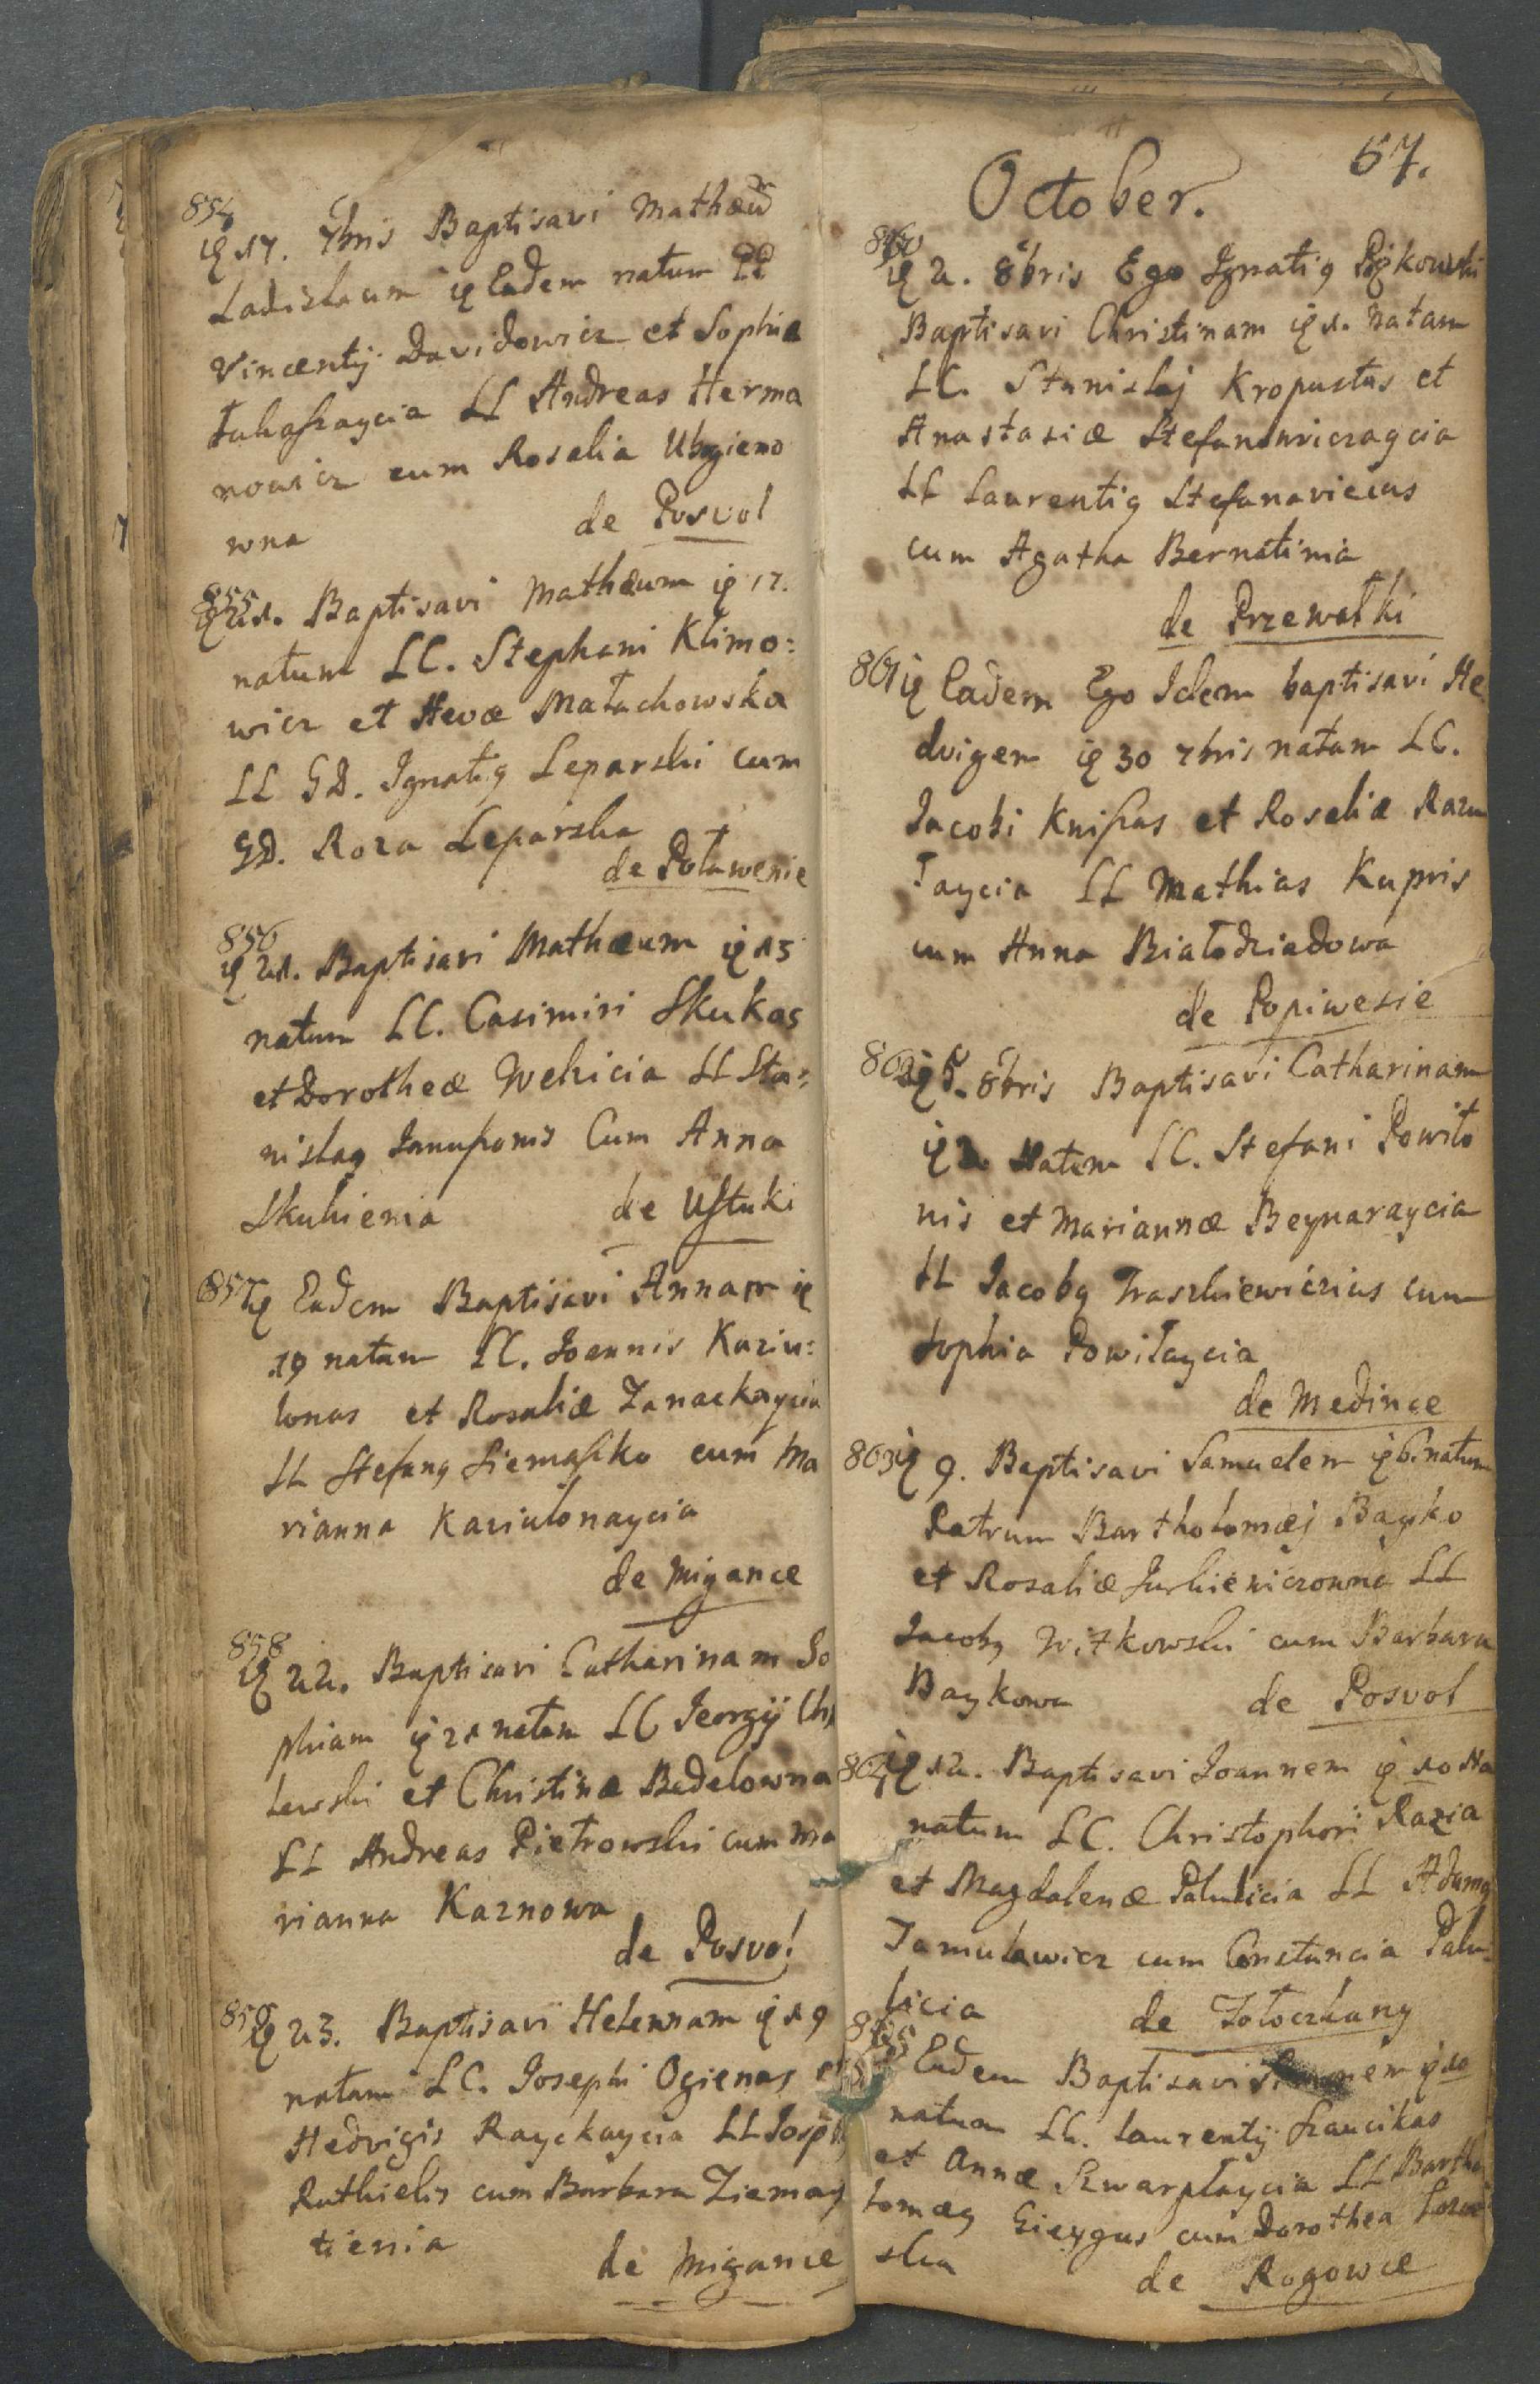 854
17. 7bris Baptisavi Mathæu
Ladislaum Eadem natum PP
Vincentij Dawidowicz et Sophiæ
LL Andreas Herma
nowicz cum Rosalia
wna de Posvol
855
21. Baptisavi Mathæum 17.
natum LC. Stephani Klimo=
wicz et Hevæ Małachowska
LL GD. Ignatig Leparski cum
GD. Roza Leparska
de Poławenie
856
21. Baptisavi Mathæum 15
natum LC. Casimiri Skukas
et Dorotheæ Wekicia LL Sta=
nislag Cum Anna
Skukienia de Ustuki
857 Eadem Baptisavi Annam
19 natam LC. Joannis Kaziu=
lonas et Rosaliæ Janackaycia
LL Stefang Siemaszko cum Ma
rianna Kaziulonaycia
de Migance
858
22. Baptisavi Catharinam So
phiam 21 natam LC Jeorgij Ch
lewski et Christinæ Badelowna
LL Andreas Pietrowski cum Ma
rianna Kaznowa
de Posvol
859 23. Baptisavi Helennam 19
natam LC. Josephi Ogienas et
Hedvigis Rayckaycia LL Josph
Ruthielis cum Barbara Ziemay
tienia
de Migance
57.
October.
860
2. 8bris Ego Ignatig
Baptisavi Christinam 1. natam
LC. Stanislaj Kropustas et
Anastasiæ Stefanowiczaycia
LL Laurentig Stefanavicius
cum Agatha Bernatinia
de Przewałki
861 Eadem Ego Idem baptisavi He
dvigem 30 7bris natam LC.
Jacobi Kniszas et Rosaliæ Razu
łaycia LL Mathias Kupris
cum Anna Białodziadowa
de Popiwesie
862 5. 8bris Baptisavi Catharinam
2. natam LC. Stefani Powiło
nis et Mariannæ Beynaraycia
LL Jacobg Traszkiewiczius cum
Sophia Powiłaycia
de Medince
863 9. Baptisavi Samuelem 6. natum
Patrum Bartholomæj Bayko
et Rosaliæ Jurkiewiczowna LL
Jacobg Witkowski cum Barbara
Baykowa de Posvol
864 12. Baptisavi Joannem 10 Na
natum LC. Christophori Razia
et Magdalenæ Palulicia LL Adamg
Jamulawicz cum Constancia Palu=
licia de Tołoczkany
865 Eadem Baptisavi 10
natum LC. Laurentij
et Annæ Szwarplaycia LL Bartho
lomæg Gieygus cum Dorothea
ska
de Rogowce